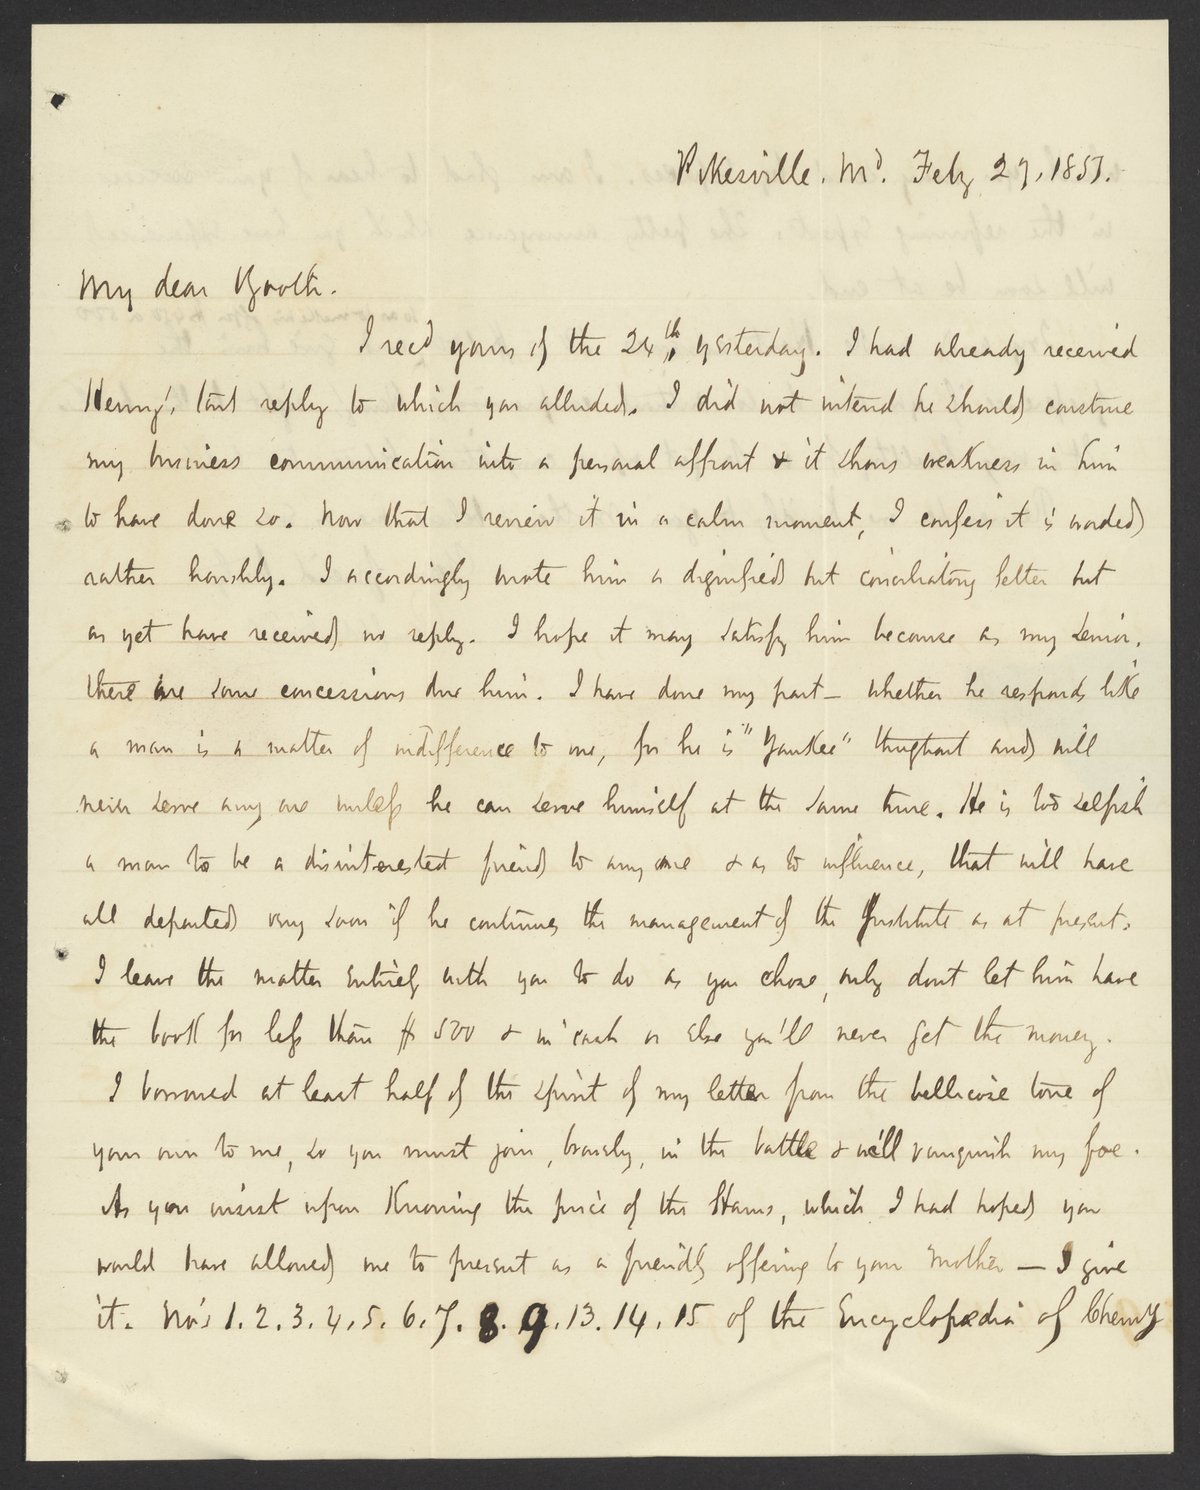 Pikesville. Md. Feby 27, 1857.
My dear Booth.
I recd yours of the 24th, yesterday. I had already received
Henry's last reply to which you alluded. I did not intend he should construe
my business communication into a personal affront & it shows weakness in him
to have done so. Now that I review it in a calm moment, I confess it is worded
rather harshly. I accordingly wrote him a dignified but conciliatory letter but
as yet have received no reply. I hope it may satisfy him because as my senior,
there are some concessions due him. I have done my part — whether he responds like
a man is a matter of indifference to me, for he is "Yankee" throughout and will
never serve any one unless he can serve himself at the same time. He is too selfish
a man to be a disinterested friend to any one & as to influence, that will have
all departed very soon if he continues the management of the Institute as at present.
I leave the matter entirely with you to do as you chose, only dont let him have
the book for less than $500 & in cash or else you'll never get the money.
I borrowed at least half of the spirit of my letter from the bellicose tone of
your own to me, so you must join, bravely, in the battle & we'll vanquish my foe.
As you insist upon Knowing the price of the Hams, which I had hoped you
would have allowed me to present as a friendly offering to your Mother — I give
it. No's 1. 2. 3. 4. 5. 6. 7. 8. 9. 13. 14. 15 of the Encyclopædia of Chemy